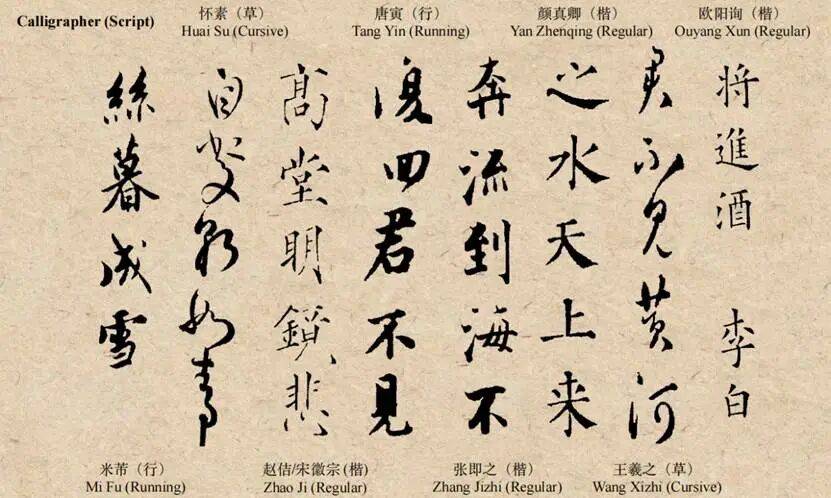 Calligrapher (Script)
怀素（草）
Huai Su (Cursive)
唐寅（行）
Tang Yin (Running)
颜真卿（楷）
Yan Zhenqing (Regular)
欧阳询（楷）
Ouyang Xun (Regular)
将進酒 李白
君不見黄河
之水天上来
奔流到海不
復回君不見
髙堂明鏡悲
白髮朝如青
絲暮成雪
米芾（行）
Mi Fu (Running)
赵佶/宋徽宗（楷）
Zhao Ji (Regular)
张即之（楷）
Zhang Jizhi (Regular)
王羲之（草）
Wang Xizhi (Cursive)